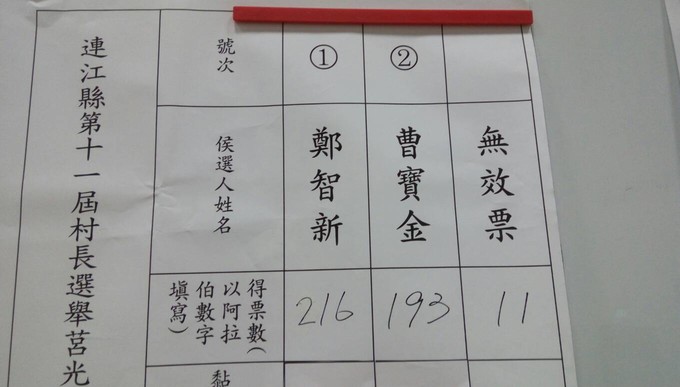 連江縣第十一屆村長選舉莒光
號次
①
②
侯選人姓名
鄭智新
曹寶金
無效票
得票數(
以阿拉
伯數字
填寫)
216
193
11
黏